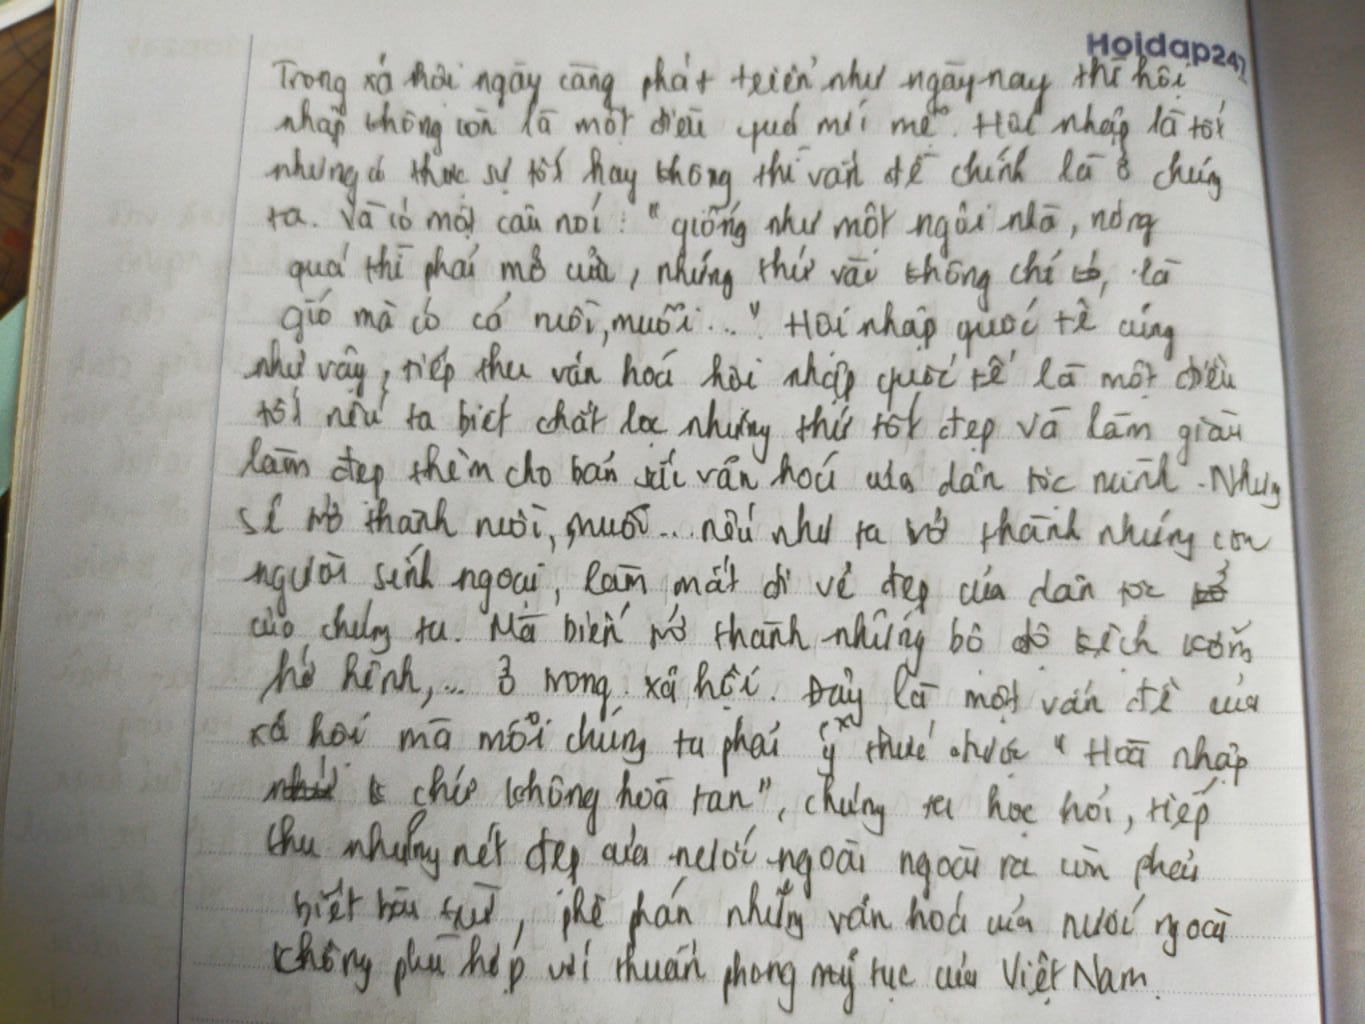 Hoidap247
Trong xã hội ngày càng phát triển như ngày nay thì hội
nhập không còn là một điều quá mới mẻ. Hội nhập là tốt
nhưng có thực sự tốt hay không thì vấn đề chính là ở chúng
ta. Và có một câu nói: "giống như một ngôi nhà, nóng
quá thì phải mở cửa, nhưng thứ vào không chỉ là
gió mà có cả ruồi, muỗi..." Hội nhập quốc tế cũng
như vậy, tiếp thu văn hoá hội nhập quốc tế là một điều
tốt nếu ta biết chắt lọc những thứ tốt đẹp và làm giàu
làm đẹp thêm cho bản sắc văn hoá của dân tộc mình. Nhưng
sẽ trở thành ruồi, muỗi... nếu như ta trở thành những con
người sính ngoại, làm mất đi vẻ đẹp của dân tộc
của chúng ta. Mà biến trở thành những bộ đồ kệch cỡm
hở hênh,... ở trong xã hội. Đây là một vấn đề của
xã hội mà mỗi chúng ta phải ý thức được "Hoà nhập
chứ không hoà tan", chúng ta học hỏi, tiếp
thu những nét đẹp của nước ngoài ngoài ra còn phải
biết bài trừ, phê phán những văn hoá của nước ngoài
không phù hợp với thuần phong mỹ tục của Việt Nam.